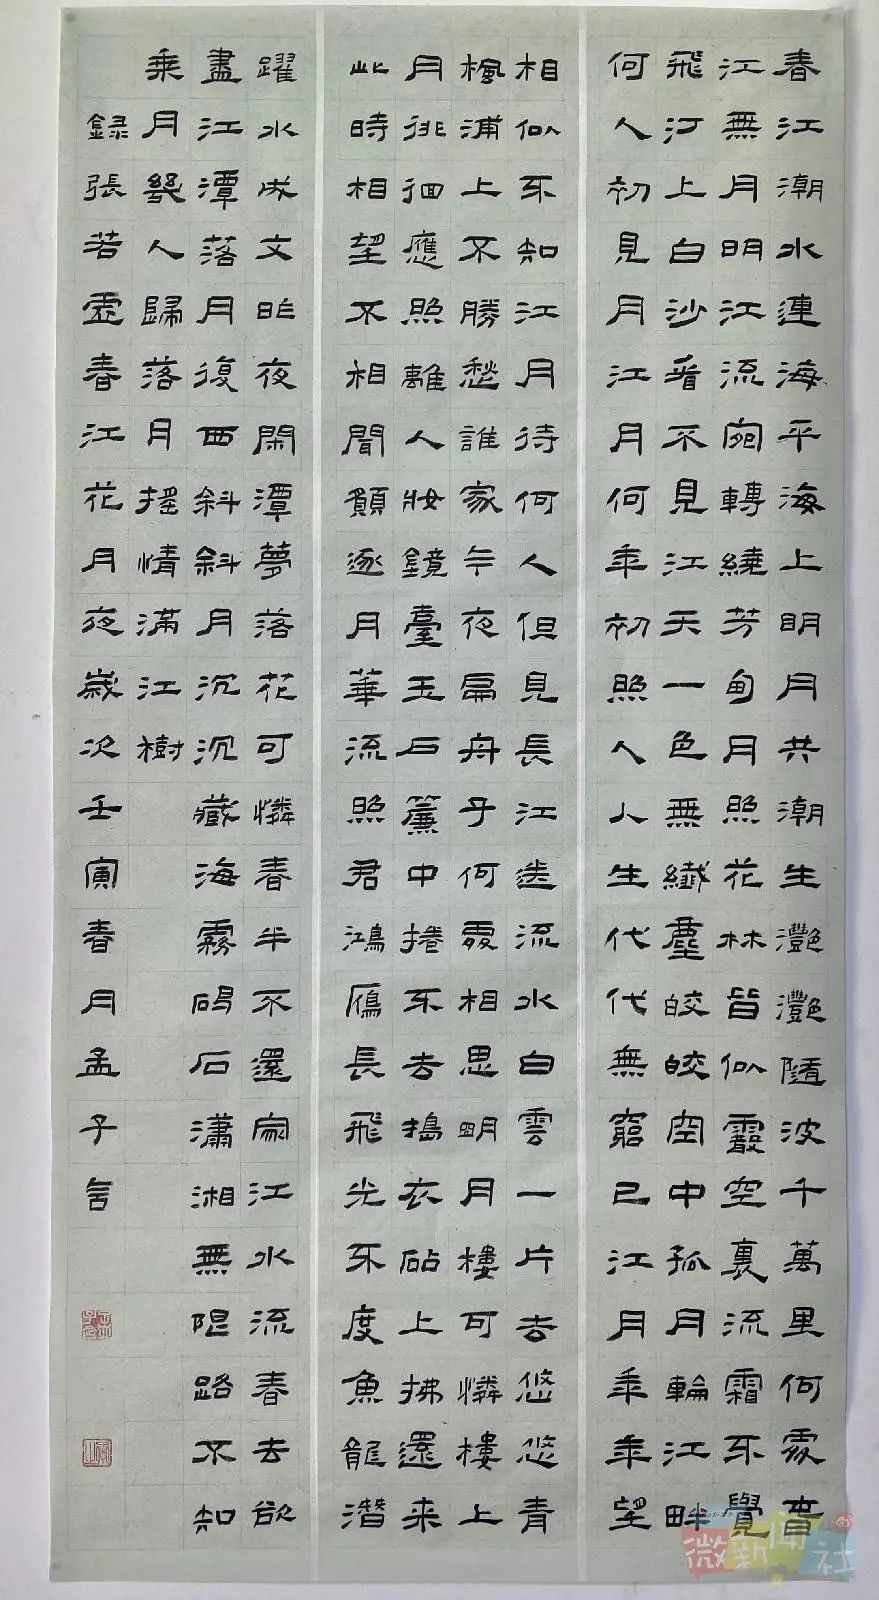 春江潮水連海平海上明月共潮生灩灩隨波千萬里何處春
江無月明江流宛轉繞芳甸月照花林皆似霰空裏流霜不覺
飛汀上白沙看不見江天一色無纖塵皎皎空中孤月輪江畔
何人初見月江月何年初照人人生代代無窮已江月年年望
相似不知江月待何人但見長江送流水白雲一片去悠悠青
楓浦上不勝愁誰家今夜扁舟子何處相思明月樓可憐樓上
月徘徊應照離人妝鏡臺玉戶簾中捲不去搗衣砧上拂還来
此時相望不相聞願逐月華流照君鴻雁長飛光不度魚龍潛
躍水成文昨夜閑潭夢落花可憐春半不還家江水流春去欲
盡江潭落月復西斜斜月沉沉藏海霧碣石瀟湘無限路不知
乘月幾人歸落月搖情滿江樹
錄張若虛春江花月夜歲次壬寅春月孟子言
微新闻社